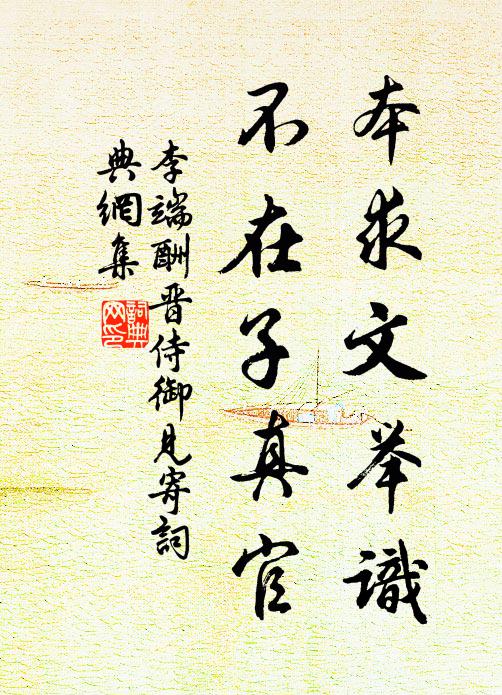 本求文举識
不在子真官
李端酬晋侍御見寄詞
典網集
詞典
网印